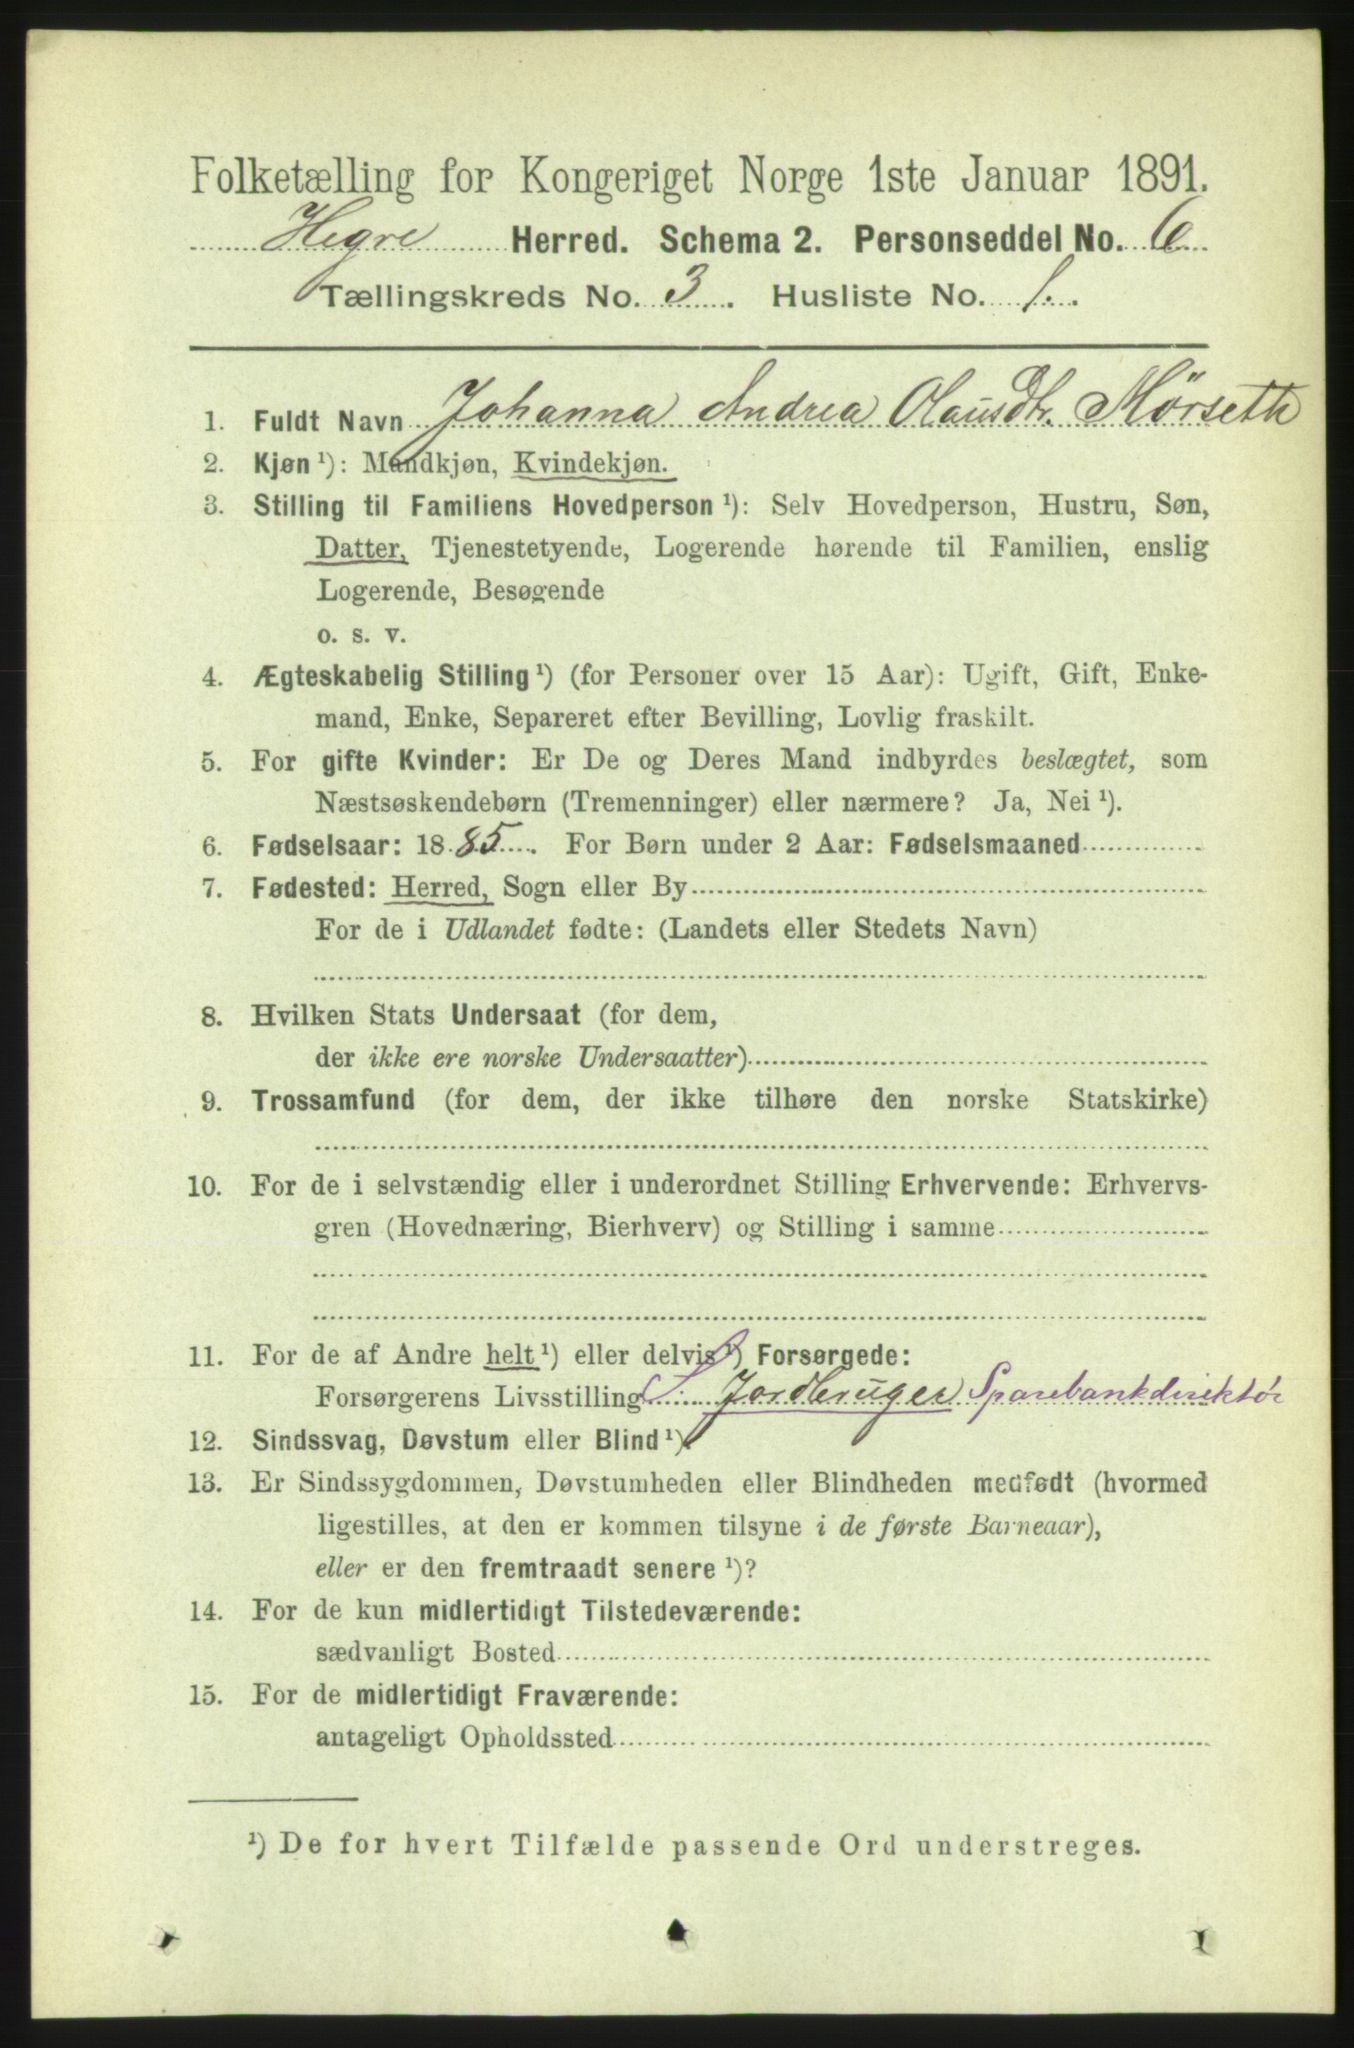 Folketælling for Kongeriget Norge 1ste Januar 1891.
Hegre Herred. Schema 2. Personseddel No. 6
Tællingskreds No. 3. Husliste No. 1.
1. Fuldt Navn Johanna Andrea Olausdtr. Mørseth
2. Kjøn ¹): Mandkjøn, Kvindekjøn.
3. Stilling til Familiens Hovedperson ¹): Selv Hovedperson, Hustru, Søn,
Datter, Tjenestetyende, Logerende hørende til Familien, enslig
Logerende, Besøgende
o. s. v.
4. Ægteskabelig Stilling ¹) (for Personer over 15 Aar): Ugift, Gift, Enke-
mand, Enke, Separeret efter Bevilling, Lovlig fraskilt.
5. For gifte Kvinder: Er De og Deres Mand indbyrdes beslægtet, som
Næstsøskendebørn (Tremenninger) eller nærmere? Ja, Nei ¹).
6. Fødselsaar: 1885. For Børn under 2 Aar: Fødselsmaaned
7. Fødested: Herred, Sogn eller By
For de i Udlandet fødte: (Landets eller Stedets Navn)
8. Hvilken Stats Undersaat (for dem,
der ikke ere norske Undersaatter)
9. Trossamfund (for dem, der ikke tilhøre den norske Statskirke)
10. For de i selvstændig eller i underordnet Stilling Erhvervende: Erhvervs-
gren (Hovednæring, Bierhverv) og Stilling i samme
11. For de af Andre helt ¹) eller delvis ¹) Forsørgede:
Forsørgerens Livsstilling S. Jordbruger Sparebankdirektør
12. Sindssvag, Døvstum eller Blind ¹).
13. Er Sindssygdommen, Døvstumheden eller Blindheden medfødt (hvormed
ligestilles, at den er kommen tilsyne i de første Barneaar),
eller er den fremtraadt senere ¹)?
14. For de kun midlertidigt Tilstedeværende:
sædvanligt Bosted
15. For de midlertidigt Fraværende:
antageligt Opholdssted
¹) De for hvert Tilfælde passende Ord understreges.